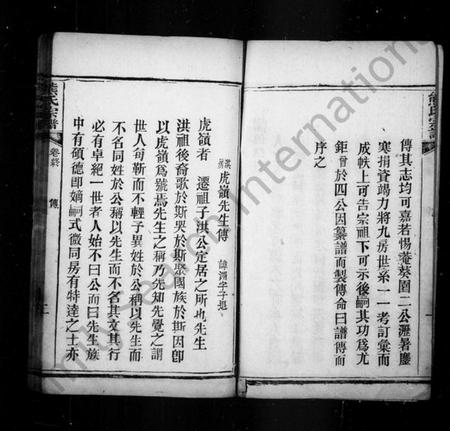 傳其志均可嘉若惕菴葵園二公瀝暑鏖
寒捐資竭力將九房世系一一考訂彙而
成帙上可告宗祖下可示後嗣其功爲尤
鉅曾於四公因纂譜而製傳命曰譜傳而
序之
熊氏宗譜
卷終
傳
虎嶺先生傳
諱淵字子退
虎嶺者 遷祖子淇公定居之所也先生
洪祖後裔歌於斯哭於斯聚團族於斯因卽
以虎嶺爲號焉先生之稱乃先知先覺之謂
世人每靳而不輕予異姓於公稱以先生而
不名同姓於公稱以先生而不名其文其行
必有卓絕一世者人始不曰公而曰先生族
中有碩德即嫡嗣式微同房有特達之士亦
熊氏宗譜